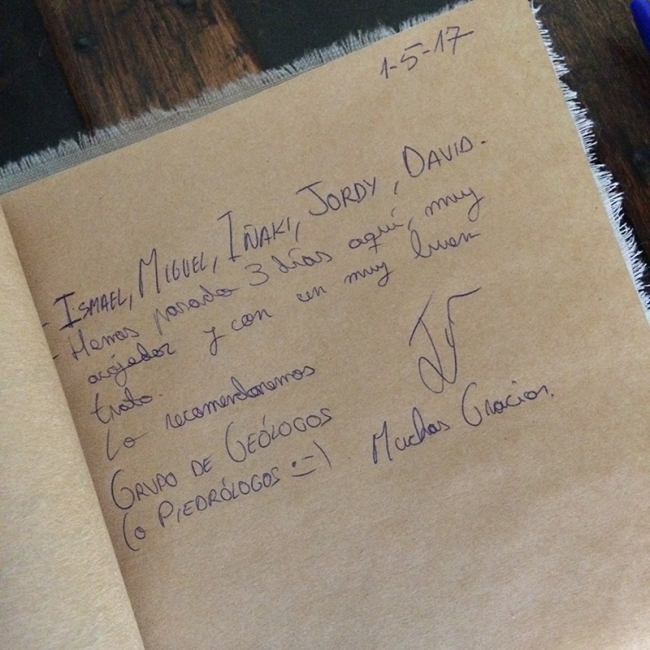 1-5-17
- ISMAEL, MIGUEL, IÑAKI, JORDY, DAVID.
- Hemos pasado 3 días aquí, muy
acójedor y con un muy buen
trato.
Lo recomendaremos
GRUPO DE GEÓLOGOS
(o PIEDRÓLOGOS :=)
Muchas Gracias.